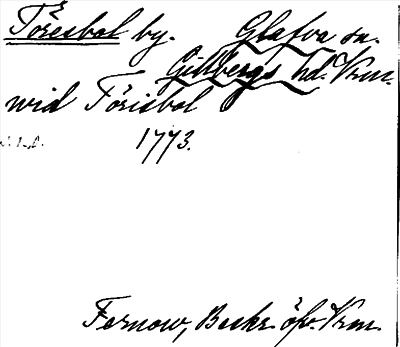 Töresbol by. Glafva sn.
Gillbergs hd. Vrm.
wid Törisbol
1773.
Fernow, Beskr. öfv. Vrm.